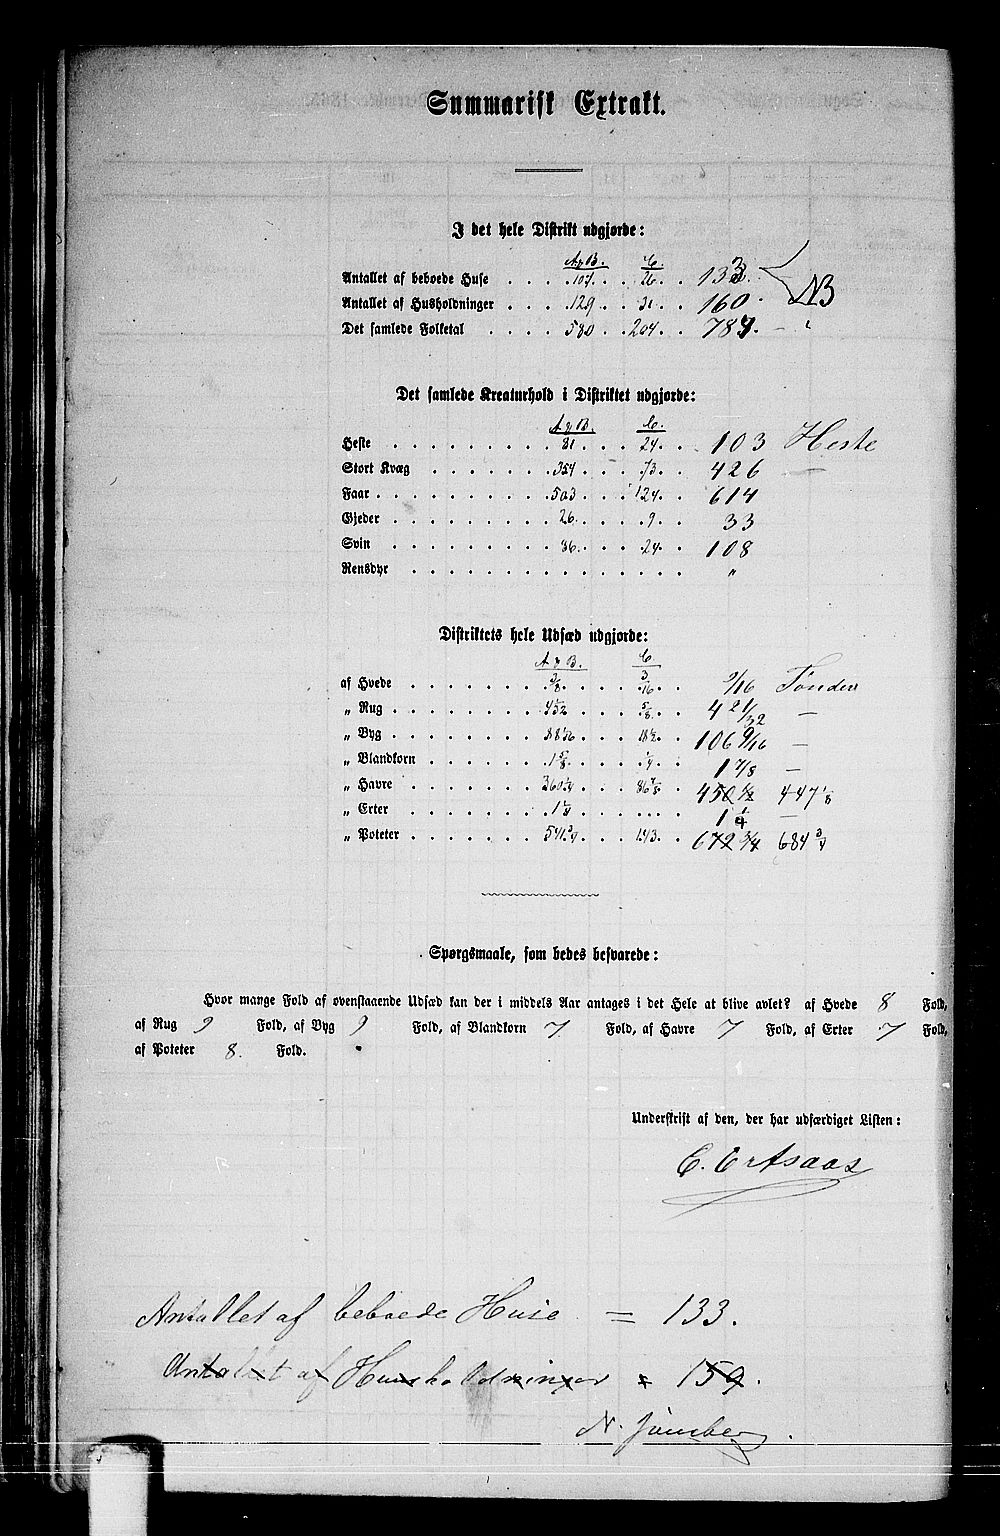 Summarisk Extrakt.
I det hele Distrikt udgjorde:
A & B. C.
Antallet af beboede Huse . . . 107. 26 133.
Antallet af Husholdninger . . . 129 31 160. NB
Det samlede Folketal . . . 580 204 784. — "
Det samlede Kreaturhold i Distriktet udgjorde:
A & B. C.
Heste . . . 81 24 103 Heste
Stort Kvæg . . . 354 73 426 —
Faar . . . 503 124 614
Gjeder . . . 26 9 33
Svin . . . 86 24 108
Rensdyr . . . "
Distriktets hele Udsæd udgjorde:
A & B. C.
af Hvede . . . 3/8 3/16 9/16 Tønder
„ Rug . . . 5/8 4 21/32 —
„ Byg . . . 106 9/16 —
„ Blandkorn . . . 1 5/8 1/4 1 7/8 —
„ Havre . . . 360 1/4 86 7/8 450 1/2 447 1/8
„ Erter . . . 1 1/4 1 1/4 —
„ Poteter . . . 541 3/4 143 672 3/4 684 3/4
Spørgsmaale, som bedes besvarede:
Hvor mange Fold af ovenstaaende Udsæd kan der i middels Aar antages i det Hele at blive avlet? af Hvede 8 Fold,
af Rug 9 Fold, af Byg 9 Fold, af Blandkorn 7 Fold, af Havre 7 Fold, af Erter 7 Fold,
af Poteter 8. Fold.
Underskrift af den, der har udfærdiget Listen:
Antallet af beboede Huse = 133.
Antallet af Huusholdninger = 159.